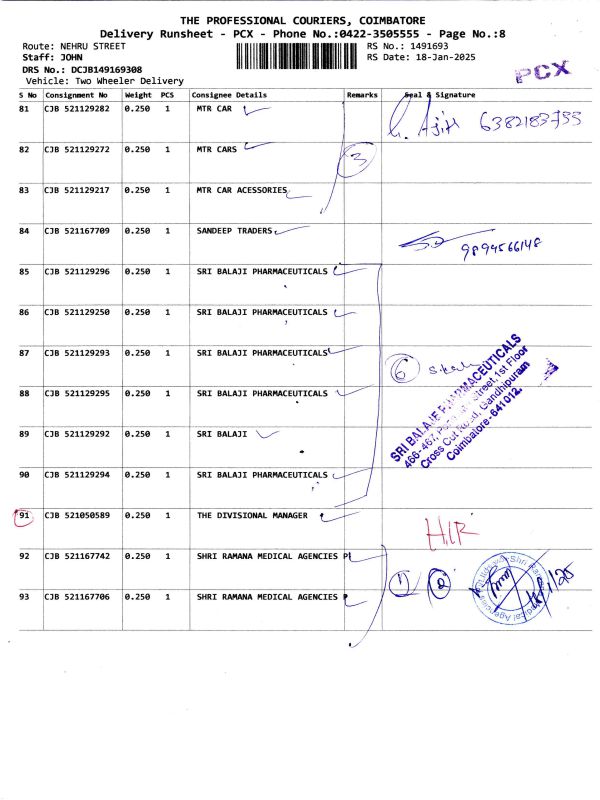 THE PROFESSIONAL COURIERS, COIMBATORE
Delivery Runsheet - PCX - Phone No.:0422-3505555 - Page No.:8
Route: NEHRU STREET RS No.: 1491693
Staff: JOHN RS Date: 18-Jan-2025
DRS No.: DCJB149169308
Vehicle: Two Wheeler Delivery
PCX
S No Consignment No Weight PCS Consignee Details Remarks Seal & Signature
81 CJB 521129282 0.250 1 MTR CAR
6382183755
82 CJB 521129272 0.250 1 MTR CARS
3
83 CJB 521129217 0.250 1 MTR CAR ACESSORIES
84 CJB 521167709 0.250 1 SANDEEP TRADERS
9894566148
85 CJB 521129296 0.250 1 SRI BALAJI PHARMACEUTICALS
86 CJB 521129250 0.250 1 SRI BALAJI PHARMACEUTICALS
87 CJB 521129293 0.250 1 SRI BALAJI PHARMACEUTICALS
6
SRI BALAJI PHARMACEUTICALS
466-467, Street, 1st Floor
Cross Cut Road, Gandhipuram
Coimbatore - 641012.
88 CJB 521129295 0.250 1 SRI BALAJI PHARMACEUTICALS
89 CJB 521129292 0.250 1 SRI BALAJI
90 CJB 521129294 0.250 1 SRI BALAJI PHARMACEUTICALS
91 CJB 521050589 0.250 1 THE DIVISIONAL MANAGER
92 CJB 521167742 0.250 1 SHRI RAMANA MEDICAL AGENCIES P
1 2
18/1/25
93 CJB 521167706 0.250 1 SHRI RAMANA MEDICAL AGENCIES P